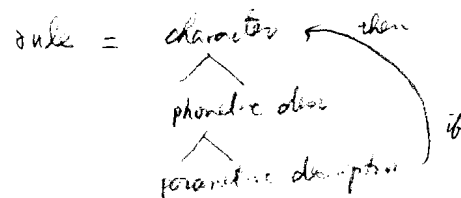 rule = character then
phonetic desc
if
parametric description